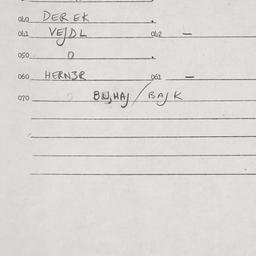 040 DEREK .
041 VEJDL 042 –
050 0 .
060 HERNER 061 –
070 BAJK